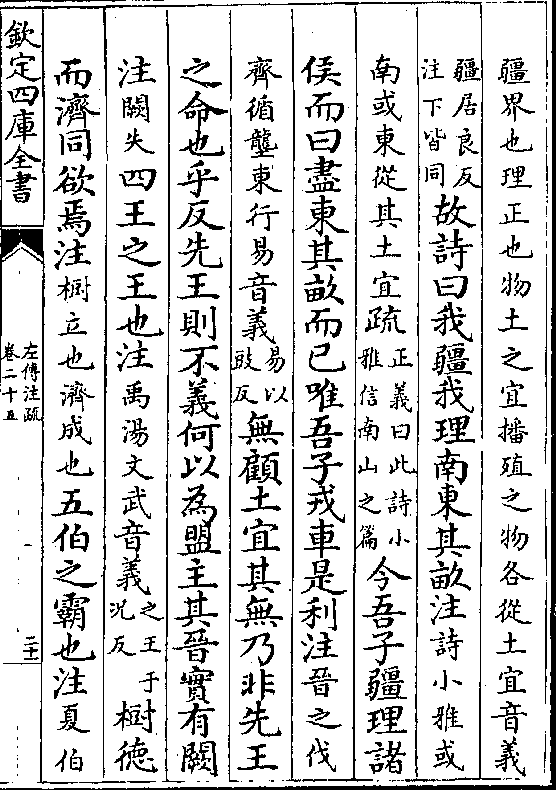 疆界也理正也物土之宜播殖之物各從土宜音義
疆居良反注下皆同故詩曰我疆我理南東其畝注詩小雅或
南或東從其土宜疏正義曰此詩小雅信南山之篇今吾子疆理諸
侯而曰盡東其畝而已唯吾子戎車是利注晉之伐
齊循壟東行易音義易以豉反無顧土宜其無乃非先王
之命也乎反先王則不義何以為盟主其晉實有闕
注闕失四王之王也注禹湯文武音義之王于況反樹德
而濟同欲焉注樹立也濟成也五伯之霸也注夏伯
欽定四庫全書
左傳注疏
卷二十五
二十